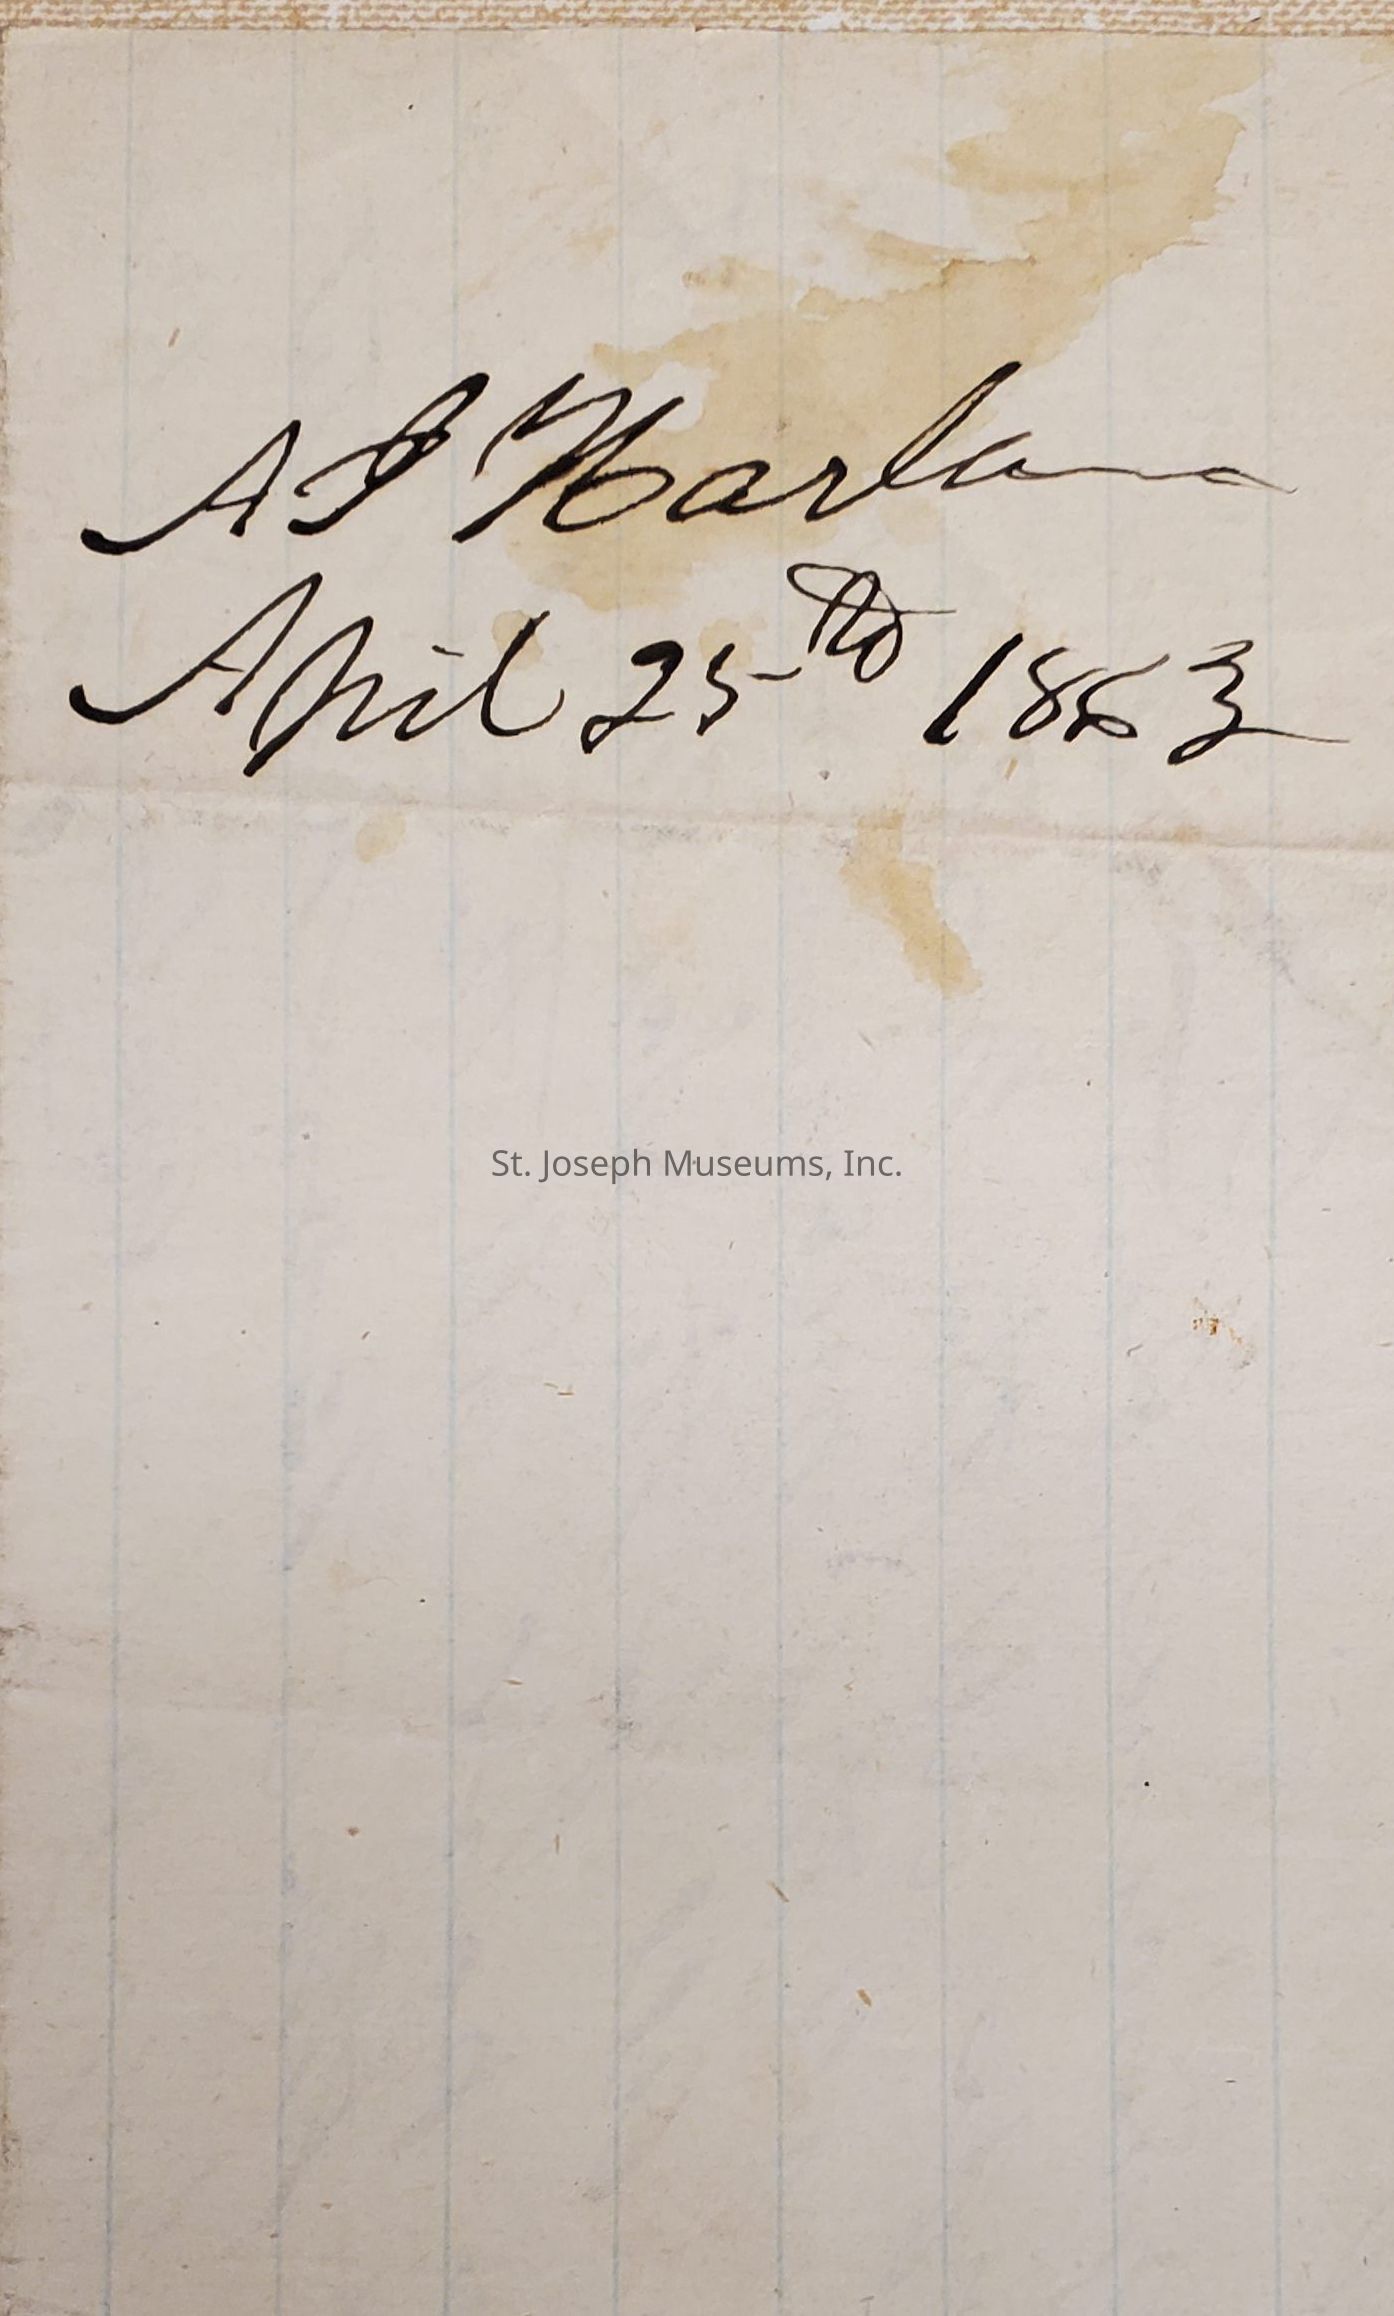 A J Harlan
April 25th 1863
St. Joseph Museums, Inc.